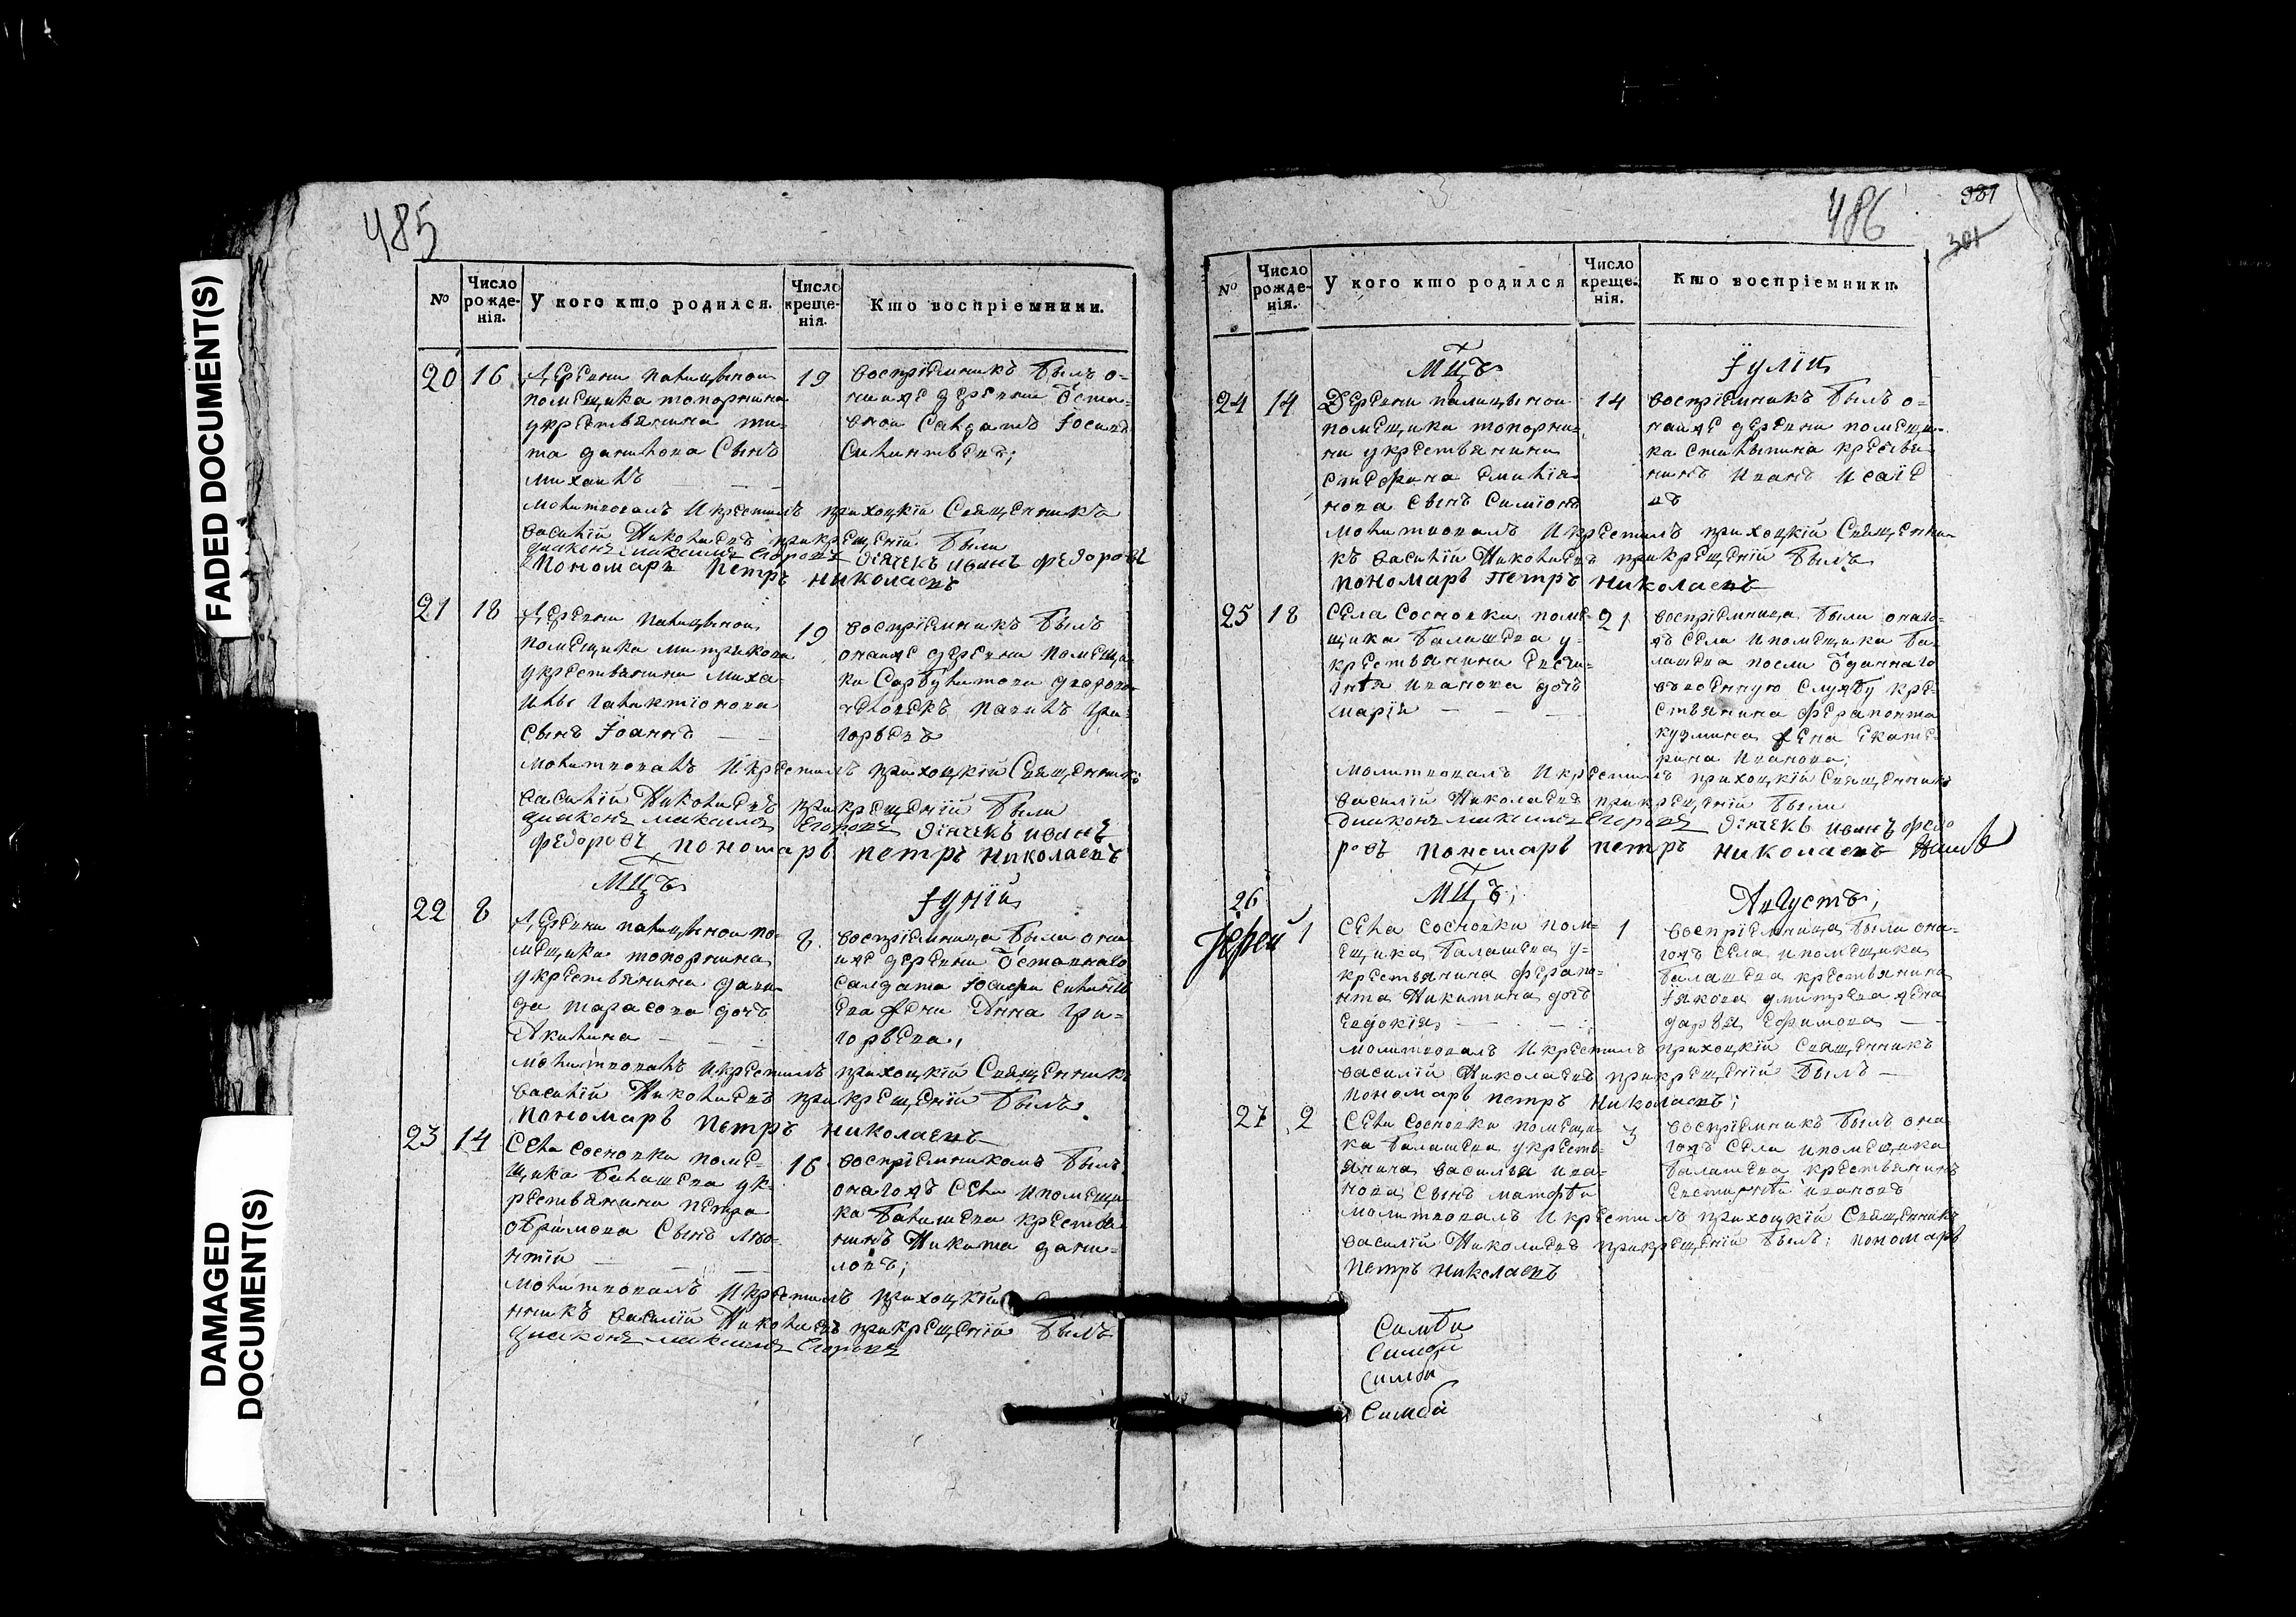 FADED DOCUMENT(S)
DAMAGED
DOCUMENT(S)
485
№ Число рожде-нія. У кого кто родился. Число креще-нія. Кто воспріемники.
20 16 19
Деревни палицыной
помещика топорнина
укрестьянина ти-
та данилова Сынъ
михаилъ
воспріемникъ былъ о-
ныяже деревни ѿста-
вной Салдатъ
молитвовалъ Икрестилъ прихоцкій Священникъ
василій Николаевъ прикрещеніи были
диаконъ максимъ Егоровъ дячекъ иванъ федоровъ
Пономарь Петръ николаевъ
21 18 19
Деревни палицыной
помещика митркова
укрестьянина миха-
илы галактіонова
Сынъ Іоаннъ
воспріемникъ былъ
оныяже деревни помещи-
ка дворово-
человекъ павилъ гри-
горьевъ
молитвовалъ Икрестилъ прихоцкій Священникъ
василій Николаевъ прикрещеніи были
диаконъ максимъ Егоровъ дячекъ иванъ
федоровъ пономарь петръ николаевъ
МЦЪ Іуній
22 8 8
Деревни палицыной по-
мещика топорнина
укрестьянина дави-
да тарасова дочь
Акилина
воспріемница была оны-
яже деревни ѿставнаго
салдата Іосифа
ева жена Анна гри-
горьева,
молитвовалъ Икрестилъ прихоцкій Священникъ
василій Николаевъ прикрещеніи былъ
пономарь Петръ николаевъ
23 14 16
Села Сосновки поме-
щика балашева ук-
рестьянина петра
Сынъ лео-
нтій
воспріемникомъ былъ
оногожъ Села Ипомещи-
ка балашева крестья
нинъ Никита дани-
ловъ;
молитвовалъ Икрестилъ прихоцкій
нникъ василій Николаевъ прикрещеніи былъ
диаконъ максимъ Егоровъ
486
301
№ Число рожде-нія. У кого кто родился Число креще-нія. Кто воспріемники.
МЦЪ Іулїи
24 14 14
Деревни палицыной
помещика топорни-
на укрестьянина
стефана емилія
нова сынъ Симїонъ
воспріемникъ былъ о-
ныяже деревни помещи-
ка крестья
нинъ Иванъ Исаїе
въ
молитвовалъ Икрестилъ прихоцкій Священни-
къ василій Николаевъ прикрещеніи былъ
пономарь Петръ николаевъ
25 18 21
Села Сосновки поме-
щика балашева у-
крестьянина евсти-
гнѣя иванова дочь
марія
воспріемница была оного-
жъ села ипомещика ба-
лашева посли ѿданнаго
въвоенную службу кре-
стьянина ферапонта
кузмина жена екате-
рина иванова;
молитвовалъ Икрестилъ прихоцкій Священникъ
василій Николаевъ прикрещеніи были
диаконъ максимъ Егоровъ дячекъ иванъ федо
ровъ пономарь петръ николаевъ
МЦЪ; Августъ;
26 1 1
Іерей
Села сосновки пом-
ещика балашева у-
крестьянина ферапо-
нта Никитина дочь
евдокія
воспріемница была оно-
гожъ села ипомещика
балашева крестьянина
Іякова дмитрева жена
дарья ефимова
молитвовалъ Икрестилъ прихоцкій священникъ
василій Николаевъ прикрещеніи былъ
пономарь петръ николаевъ;
27 2 3
Села сосновки помещи-
ка балашева укресть-
янина василья ива-
нова сынъ матфѣй
воспріемникъ былъ оно
гожъ села ипомещика
балашева крестьянинъ
евстигнѣй ивановъ
молитвовалъ Икрестилъ прихоцкій Священникъ
василій Николаевъ прикрещеніи былъ: пономарь
петръ николаевъ